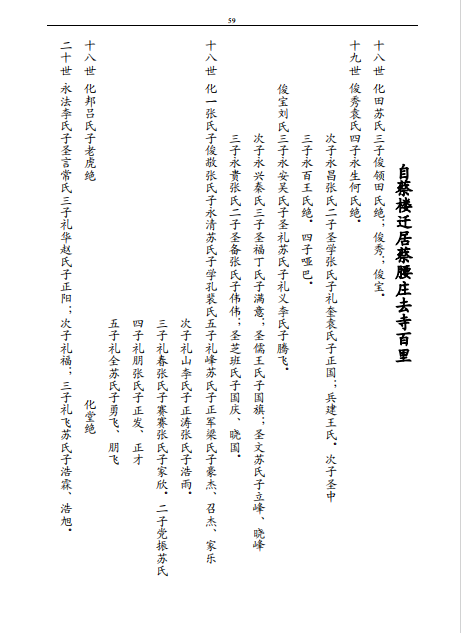 59
自蔡楼迁居蔡腰庄去寺百里
十八世 化田苏氏三子俊领田氏绝；俊秀；俊宝．
十九世 俊秀袁氏四子永生何氏绝．
次子永昌张氏二子圣学张氏子礼奎袁氏子正国；兵建王氏．次子圣中
三子永百王氏绝．四子哑巴．
俊宝刘氏三子永安吴氏子圣礼苏氏子礼义李氏子腾飞．
次子永兴秦氏三子圣福丁氏子满意；圣儒王氏子国旗；圣文苏氏子立峰、晓峰
三子永贵张氏二子圣备张氏子伟伟；圣芝班氏子国庆、晓国．
十八世 化一张氏子俊敬张氏子永清苏氏子学孔裴氏五子礼峰苏氏子正军梁氏子豪杰、召杰、家乐
次子礼山李氏子正涛张氏子浩雨．
三子礼春张氏子赛赛张氏子家欣．二子党振苏氏
四子礼朋张氏子正发、正才
五子礼全苏氏子勇飞、朋飞
十八世 化邦吕氏子老虎绝 化堂绝
二十世 永法李氏子圣言常氏三子礼华赵氏子正阳；次子礼福；三子礼飞苏氏子浩霖、浩旭．